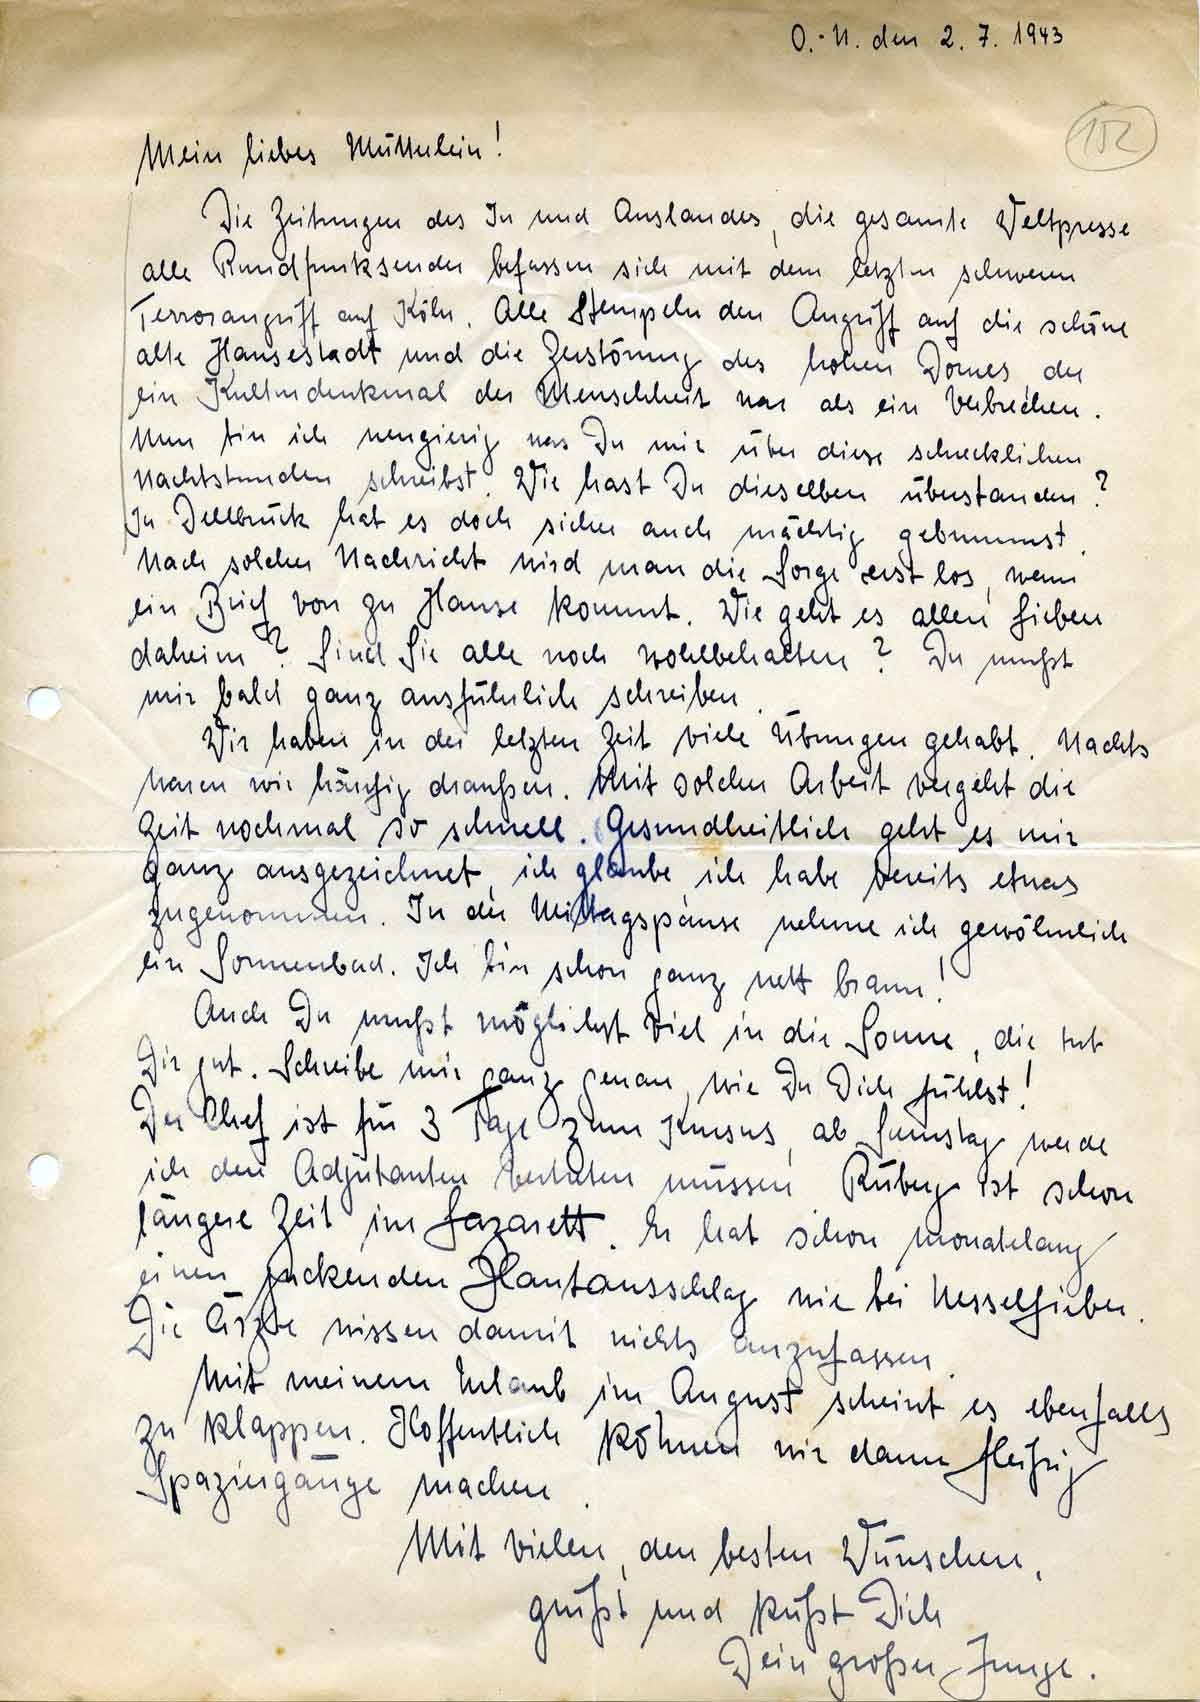 O.-U. den 2.7.1943
152
Mein liebes Mütterlein!
Die Zeitungen des In und Auslandes, die gesamte Weltpresse
alle Rundfunksender befassen sich mit dem letzten schweren
Terrorangriff auf Köln. Alle Stempeln den Angriff auf die schöne
alte Hansestadt und die Zerstörung des hohen Domes, der
ein Kulturdenkmal der Menschheit war als ein Verbrechen.
Nun bin ich neugierig was Du mir über diese schrecklichen
Nachtstunden schreibst. Wie hast Du dieselben überstanden?
In Dellbrück hat es doch sicher auch mächtig gebrummst.
Nach solcher Nachricht wird man die Sorge erst los, wenn
ein Brief von zu Hause kommt. Wie geht es allen Lieben
daheim? Sind Sie alle noch wohlbehalten? Du mußt
mir bald ganz ausführlich schreiben.
Wir haben in der letzten Zeit viele Übungen gehabt. Nachts
waren wir häufig draußen. Mit solcher Arbeit vergeht die
Zeit nochmal so schnell. Gesundheitlich geht es mir
ganz ausgezeichnet, ich glaube ich habe bereits etwas
zugenommen. In der Mittagspause nehme ich gewöhnlich
ein Sonnenbad. Ich bin schon ganz nett braun!
Auch Du mußt möglichst viel in die Sonne, die tut
Dir gut. Schreibe mir ganz genau, wie Du Dich fühlst!
Der Chef ist für 3 Tage zum Kursus, ab Samstag werde
ich den Adjutanten vertreten müssen Rüberg ist schon
längere Zeit im Lazarett. Er hat schon monatelang
einen juckenden Hautausschlag wie bei Nesselfieber.
Die Ärzte wissen damit nichts anzufassen.
Mit meinem Urlaub im August scheint es ebenfalls
zu klappen. Hoffentlich können wir dann fleißig
Spaziergänge machen.
Mit vielen, den besten Wünschen,
grüßt und küßt Dich
Dein großer Junge.